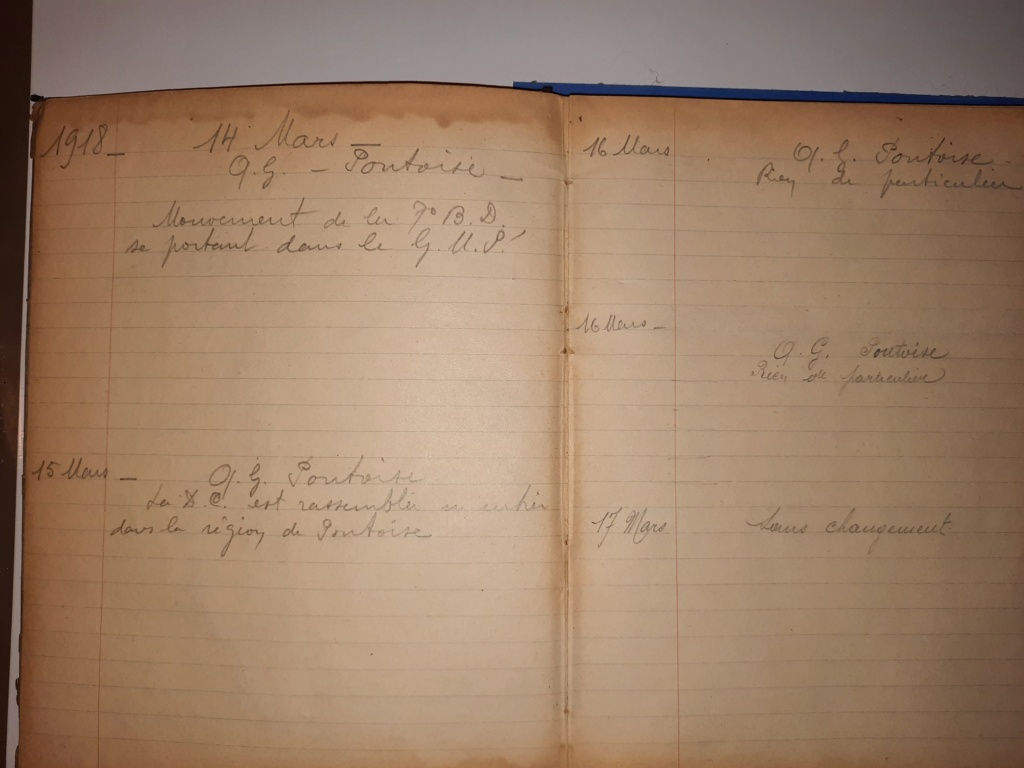 1918 _ 14 Mars _
Q.G. - Pontoise _
Mouvement de la 7e B.D.
se portant dans le G.M.P.
15 Mars _ Q.G. Pontoise
La D.C. est rassemblée en entier
dans la région de Pontoise
16 Mars . Q.G. Pontoise.
Rien de particulier
16 Mars _
Q.G. Pontoise
Rien de particulier
17 Mars Sans changement